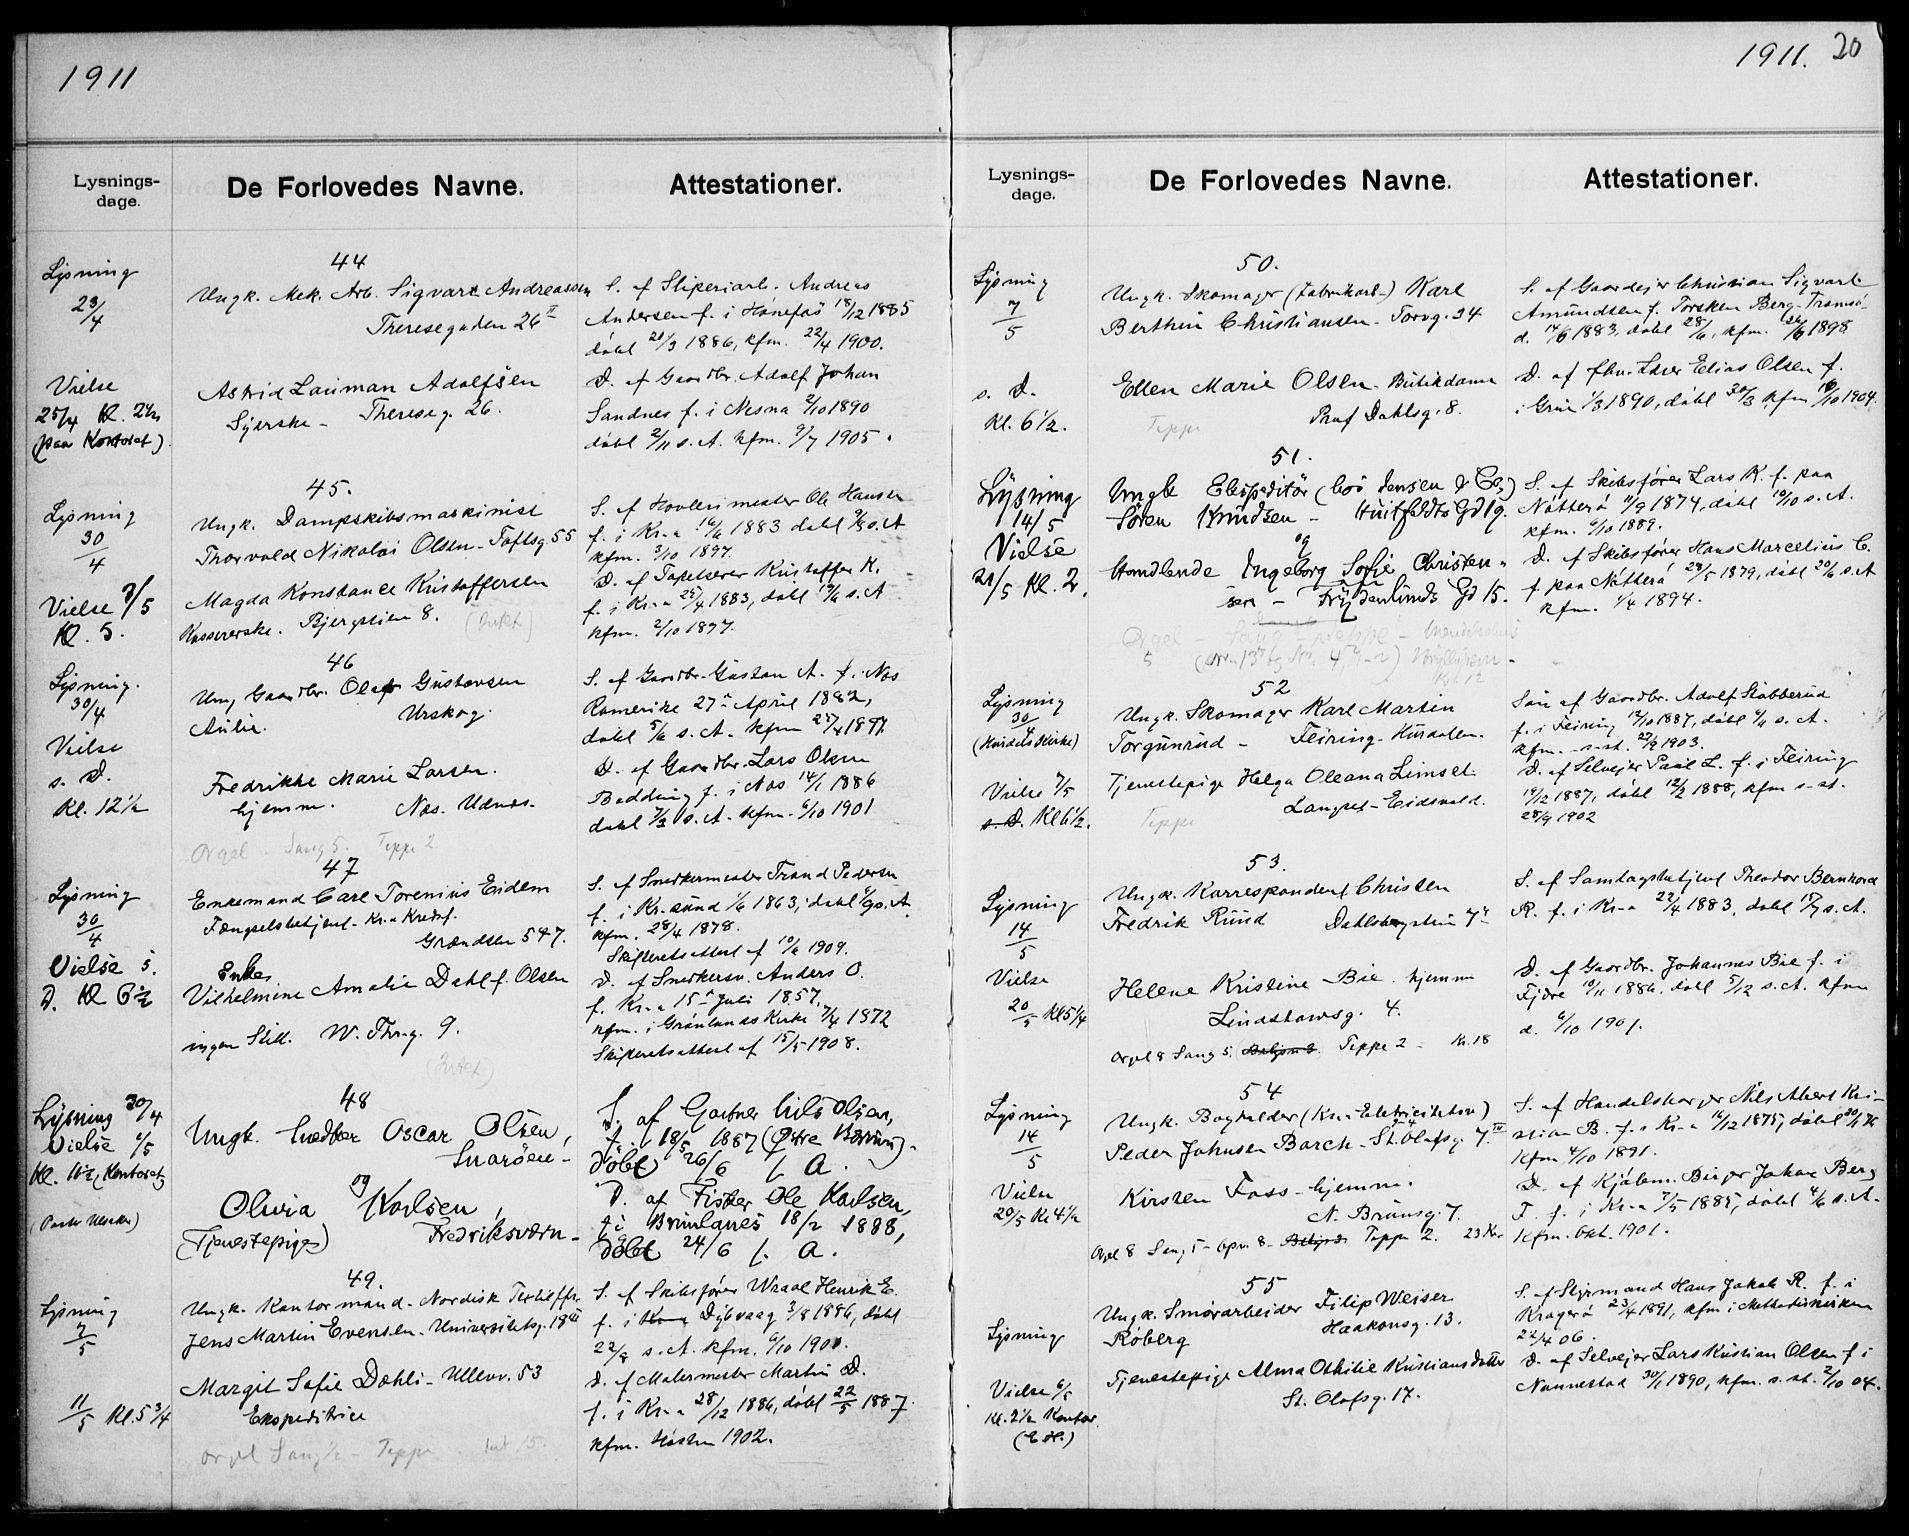 1911
Lysnings-
dage.
De Forlovedes Navne.
Attestationer.
Lysning
23/4
Vielse
25/4 Kl. 2 1/2
(paa Kontoret).
44
Ungk. Mek. Arb. Sigvart Andreassen
Theresegaden 26 II
Astrid Lauman Adolfsen
Syerske - Thereseg. 26.
S. af Sliperiarb. Andreas
Andersen f. i Hønefos 18/12 1885
døbt 21/3 1886, kfm. 22/4 1900.
D. af Gaardbr. Adolf Johan
Sandnes f. i Nesna 2/10 1890
døbt 2/11 s. A. kfm. 9/7 1905.
Lysning
30/4
Vielse 7/5
Kl. 5.
45.
Ungk. Dampskibsmaskinist
Thorvald Nikolai Olsen - Toftsg. 55
Magda Konstance Kristoffersen
Kassererske. Bjergstien 8.
S. af Høvlerimester Ole Hansen
f. i Kr.a 16/6 1883 døbt 9/8 s. A
kfm. 3/10 1897.
D. af Tapetserer Kristoffer K.
f. i Kr.a 25/4 1883, døbt 17/6 s. A
kfm. 2/10 1897.
Lysning.
30/4
Vielse
s. D.
Kl. 12 1/2
46
Ung. Gaardbr. Olaf Gustavsen
Aulie. Urskog.
Fredrikke Marie Larsen.
hjemme. Nes. Udnes.
Orgel - Sang 5. Teppe 2
S. af Gaardbr. Gustav A. f. i Nes
Romerike 27de April 1882,
døbt 5/6 s. A. kfm 25/4 1897.
D. af Gaardbr. Lars Olsen
Bødding f. i Nes 14/1 1886
døbt 7/3 s. A. kfm. 6/10 1901
Lysning
30/4
Vielse s.
D. Kl 6 1/2
47
Enkemand Carl Torenius Eidem
Fængselsbetjent - Kr.a Kredsf.
Grændsen 5 4/7.
Enke
Vilhelmine Amalie Dahl f. Olsen
ingen Still. W. Thr.g. 9.
S. af Snedkermester Trond Pedersen
f. i Kr.sund 1/6 1863, døbt s. A.
kfm. 28/4 1878.
Skifteretsattest af 10/6 1909.
D. af Snedkersv. Anders O.
f. Kr.a 15de Juli 1857.
kfm. i Grønlands Kirke 7/4 1872
Skifteretsattest af 15/5 1908.
Lysning 30/4
Vielse 6/5
Kl. 10 1/2 (Kontoret)
48
Ungk. Snedker Oscar Olsen,
Snarøen -
og
Olivia Karlsen,
(Tjenestepige) Fredriksværn -
S. af Gartner Nils Olsen,
f. 18/5 1887 (Østre Bærum).
Døbt 26/6 s. A.
D. af Fisker Ole Karlsen,
f. i Brunlanes 18/2 1888,
døbt 24/6 s. A.
Lysning
7/5
11/5 Kl. 5 3/4
49.
Ungk. Kontormand - Nordisk
Jens Martin Evensen - Universitetsg. 18 III
Margit Sofie Dahli - Ullevv. 53
Ekspeditrice
Orgel Sang
S. af Skibsfører Wraal Henrik E.
f. i Dybvaag 3/8 1886, døbt
22/8 s. A. kfm. 6/10 1900.
D. af Malermester Martin D.
f. i Kr.a 28/12 1886, døbt 22/5 1887.
kfm. Høsten 1902.
1911. 20
Lysnings-
dage.
De Forlovedes Navne.
Attestationer.
Lysning
7/5
s. D.
Kl. 6 1/2.
50.
Ungk. Skomager (Fabrikarb.) Karl
Berthin Christiansen - Torvg. 34
Ellen Marie Olsen - Butikdame
Prof Dahlsg. 8.
Teppe
S. af Gaardejer Christian Sigvart
Amundsen f. Torsken Berg - Tromsø
d. 14/5 1883, døbt 28/6, kfm. 26/6 1898
D. af fhv. Lærer Elias Olsen f.
i Grue 1/3 1890, døbt 30/3, kfm 16/10 1904.
Lysning
14/5
Vielse
21/5 Kl. 2.
51.
Ungk Ekspeditør (hos Jensen & Co,)
Søren Knudsen - Huitfeldts Gd 19.
og
Handlende Ingeborg Sofie Christen-
sen - Frydenlunds Gd 15.
S. af Skibsfører Lars K. f. paa
Nøtterø 11/9 1874, døbt 18/10 s. A.
kfm. 6/10 1889.
D. af Skibsfører Hans Marcelius C.
f. paa Nøtterø 28/5 1879, døbt 20/6 s. A
kfm. 1/4 1894.
Lysning
30/4
(Hurdals Kirke)
Vielse 7/5
s. D. Kl 6 1/2.
52
Ungk. Skomager Karl Martin
Torgunrud - Feiring - Hurdalen.
Tjenestepige Helga Oleana Limset
Langset - Eidsvold.
Teppe
Søn af Gaardbr. Adolf Stabberud
f. i Feiring 12/10 1887, døbt s. A.
kfm. s. st. 27/9 1903.
D. af Selvejer Paul L. f. i Feiring
19/12 1887, døbt 12/2 1888, kfm s. st.
28/9 1902
Lysning
14/5
Vielse
20/5 Kl 5 1/4
53.
Ungk. Korrespondent Christen
Fredrik Ruud Dahlsbergstien
Helene Kristine Bie. hjemme
Lindstowsg. 4.
Orgel 8 Sang 5. Teppe 2 - Kr. 18
S. af Samlagsbetjent Theodor Bernhard
R. f. i Kr.a 22/4 1883, døbt 17/7 s. A.
D. af Gaardbr. Johannes Bie f. i
Fjære 10/11 1886. døbt 5/12 s. A. kfm
d. 6/10 1901.
Lysning
14/5
Vielse
20/5 Kl 4 1/2
54
Ungk. Bogholder (Kr.a Elektricitetsv)
Peder Johnsen Borch - St. Olafsg. 7. III
Kirsten Foss - hjemme.
N. Brunsg. 7.
Orgel 8 Sang 5 - Opv. 8 - Teppe 2. 23 Kr
S. af Handelsborger Nils Albert Kri-
stian B. f. i Kr.a 16/12 1875, døbt 20/1 76
kfm 4/10 1891.
D. af Kjøbm. Birger Johan Berg
F. f. i Kr.a 7/5 1885, døbt 4/6 s. A.
kfm. Okt. 1901.
Lysning
Vielse 6/5
Kl. 2 1/2 Kontor.
(E. H.)
55
Ungk. Smørarbeider Filip Weiser
Roberg Haakonsg. 13.
Tjenestepige Alma Othilie Kristiansdatter
St. Olafsg. 17.
S. af Styrmand Hans Jakob R. f. i
Kragerø 23/4 1891, kfm i Methodistkirken
22/4 06.
D. af Selvejer Lars Kristian Olsen f. i
Nannestad 30/1 1890, kfm. s. st. 2/10 04.